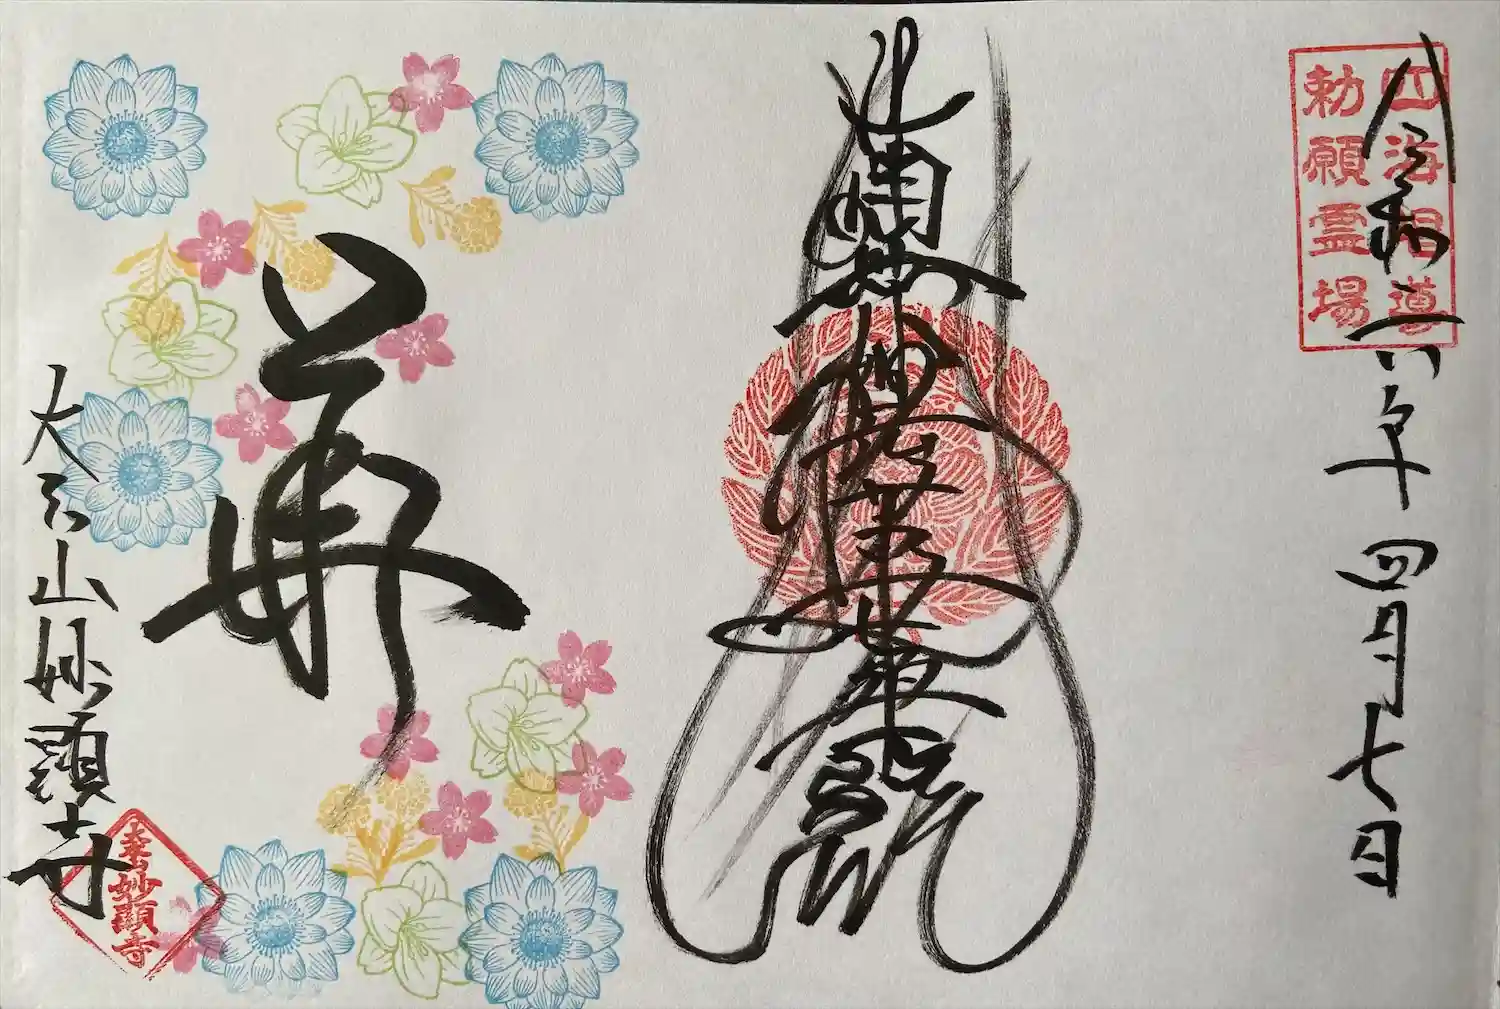 四海唱導
勅願霊場
令和六年四月七日
南無妙法蓮華経
華
大本山妙顯寺
妙顯寺